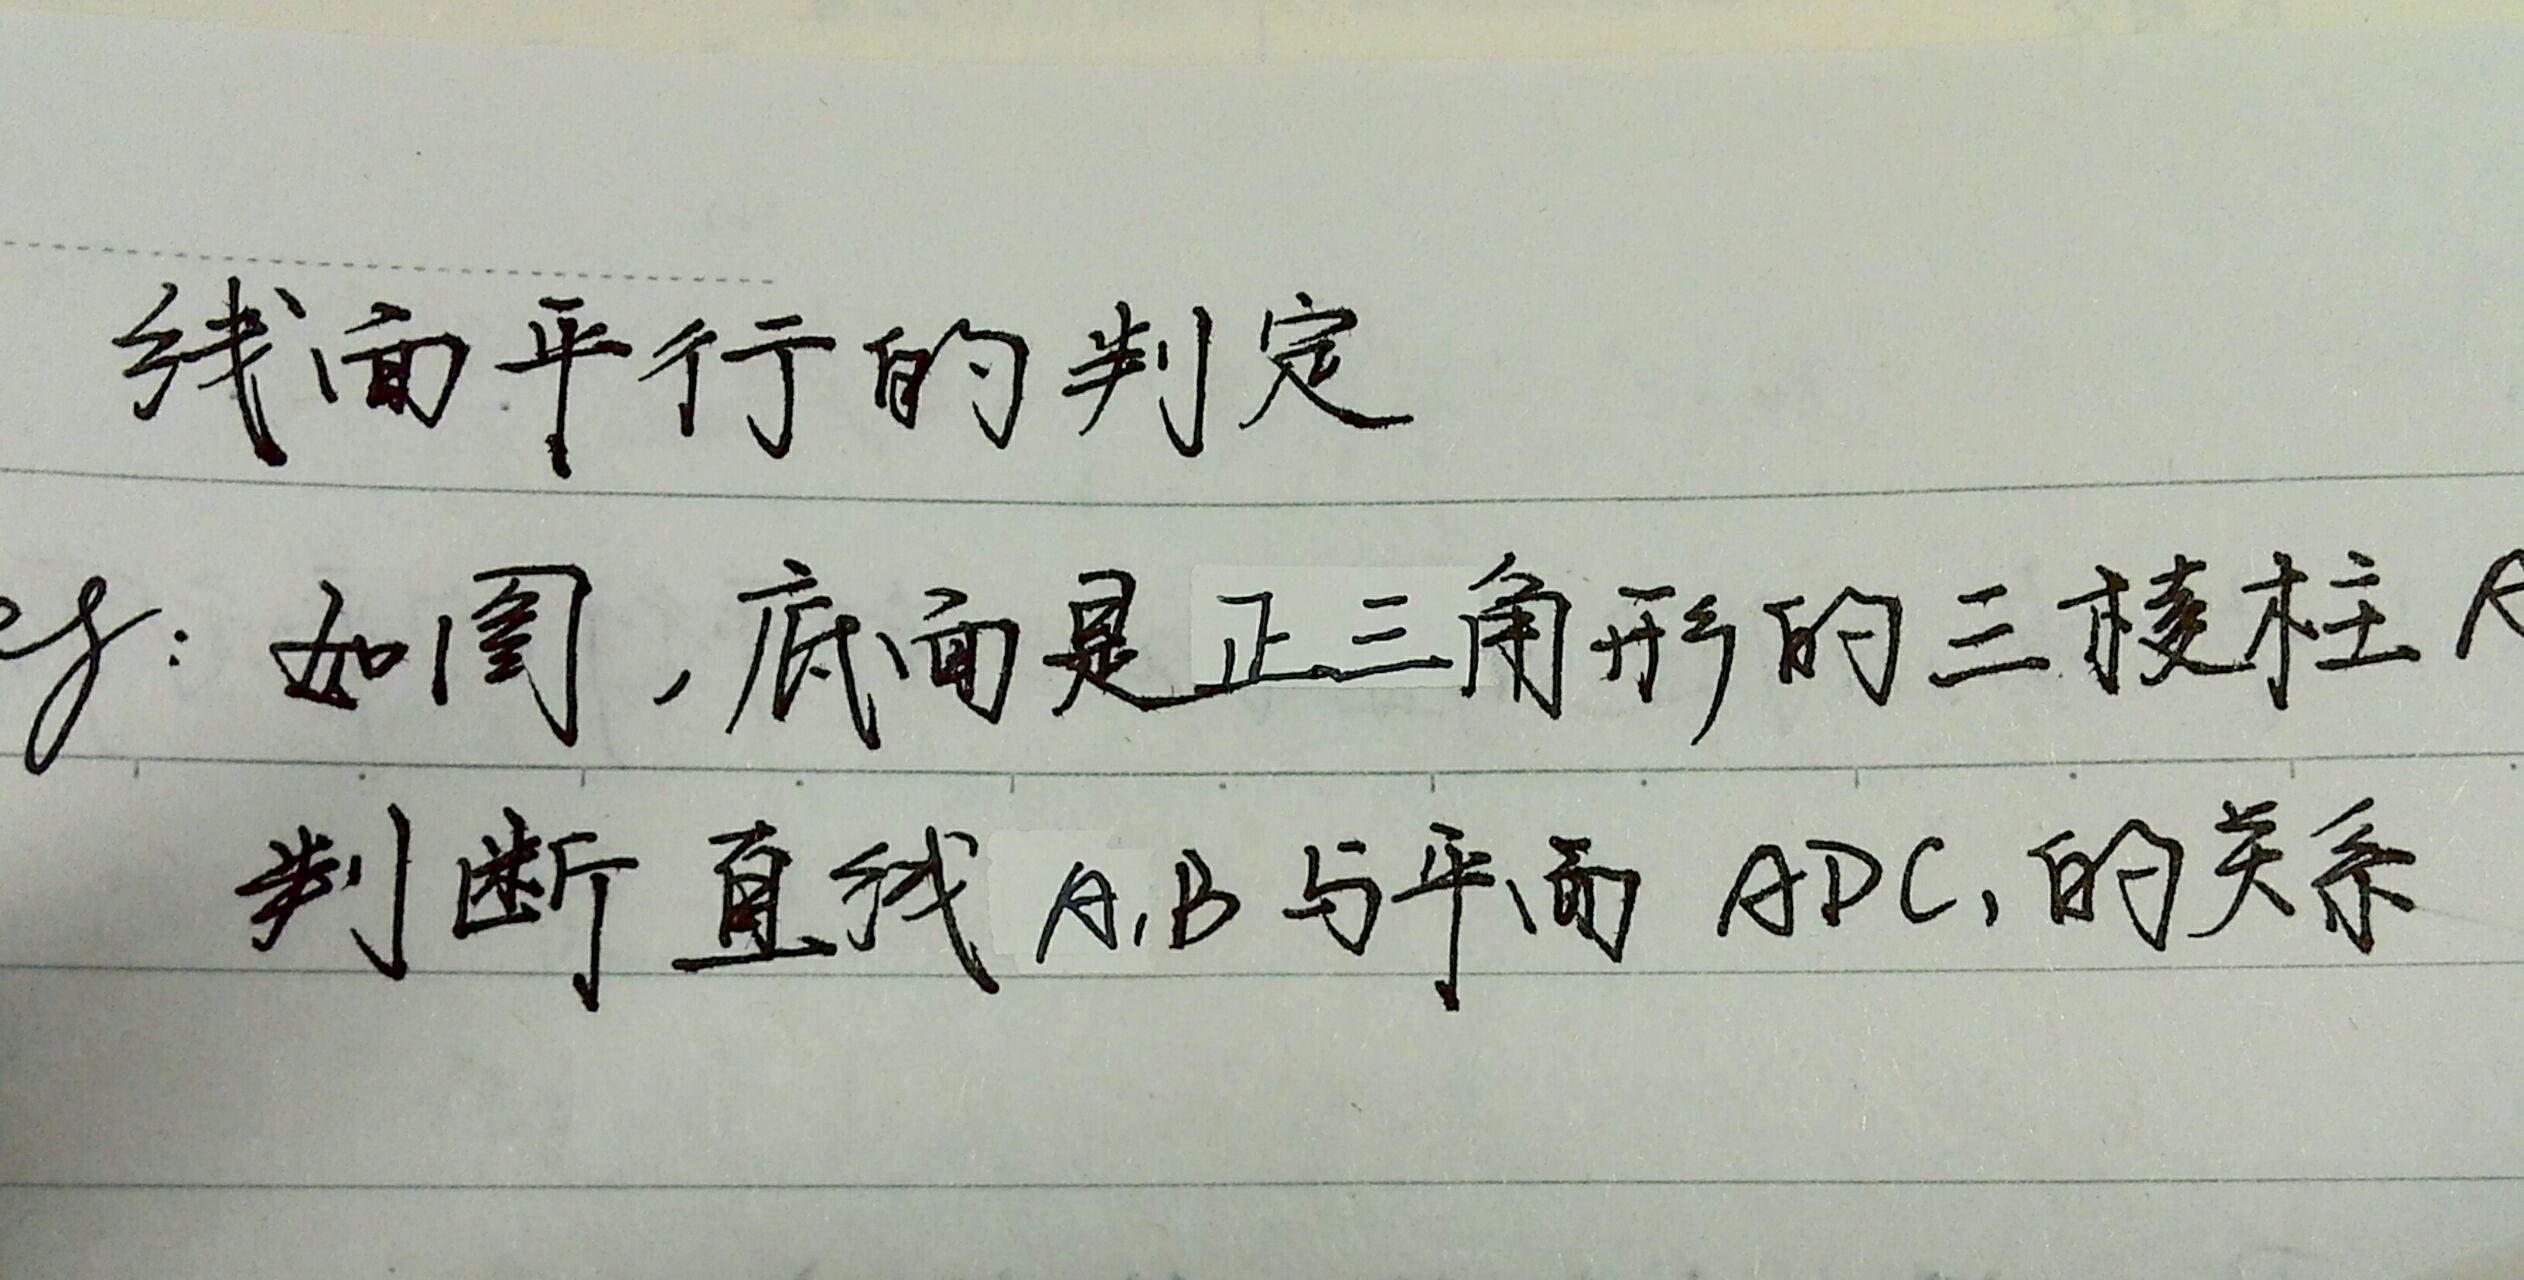 线面平行的判定
eg: 如图,底面是正三角形的三棱柱 A
判断直线 A₁B 与平面 ADC₁ 的关系